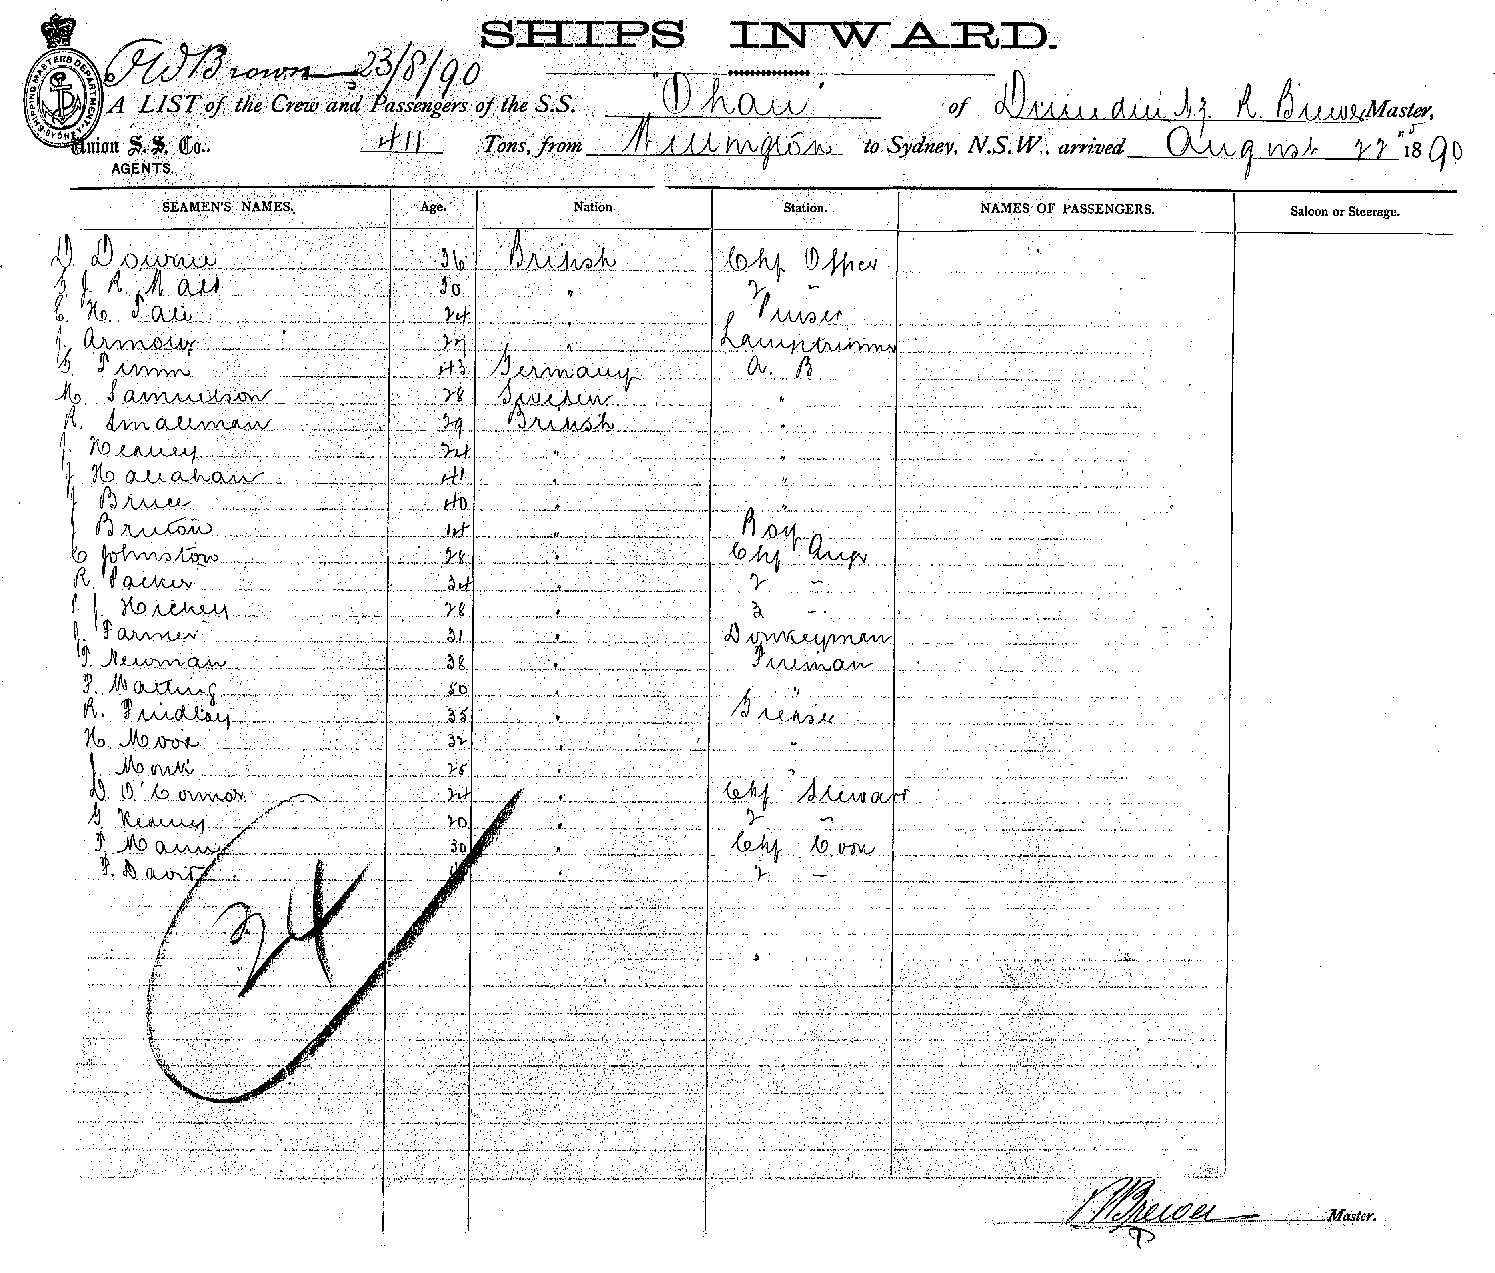 SHIPS INWARD.
F W Brown 23/8/90
SHIPPING MASTERS DEPARTMENT SYDNEY
A LIST of the Crew and Passengers of the S.S. "Ohau" of Dunedin N.Z. R. Brewer Master,
Union S. S. Co., 411 Tons, from Wellington to Sydney, N.S.W., arrived August 22 1890
AGENTS.
SEAMEN'S NAMES. Age. Nation Station. NAMES OF PASSENGERS. Saloon or Steerage.
D Downie 36 British Chf Officer
J. R. 30 " 2 "
C. H. 24 " Purser
J. Armour " Lamptrimmer
Timm 43 Germany A. B
M. Samuelson 28 Sweden "
R. Smallman 29 British "
J. Heaney 24 " "
J Hallahan 41 " "
J Bruce 40 " "
J Bruton 14 " Boy
C Johnston 28 " Chf Engr
R. Packer 34 " 2 "
P J. Hickey 28 " 3 "
J. Farmer 31 " Donkeyman
T. Newman 38 " Fireman
P. Watling 50 " "
R. Findlay 35 " Greaser
H. Moor 32 " "
J. Monk 25 " "
D. O'Connor 24 " Chf Steward
G Keaney 20 " 2 "
T. 30 " Chf Cook
P. David " 2 "
24
R Brewer Master.